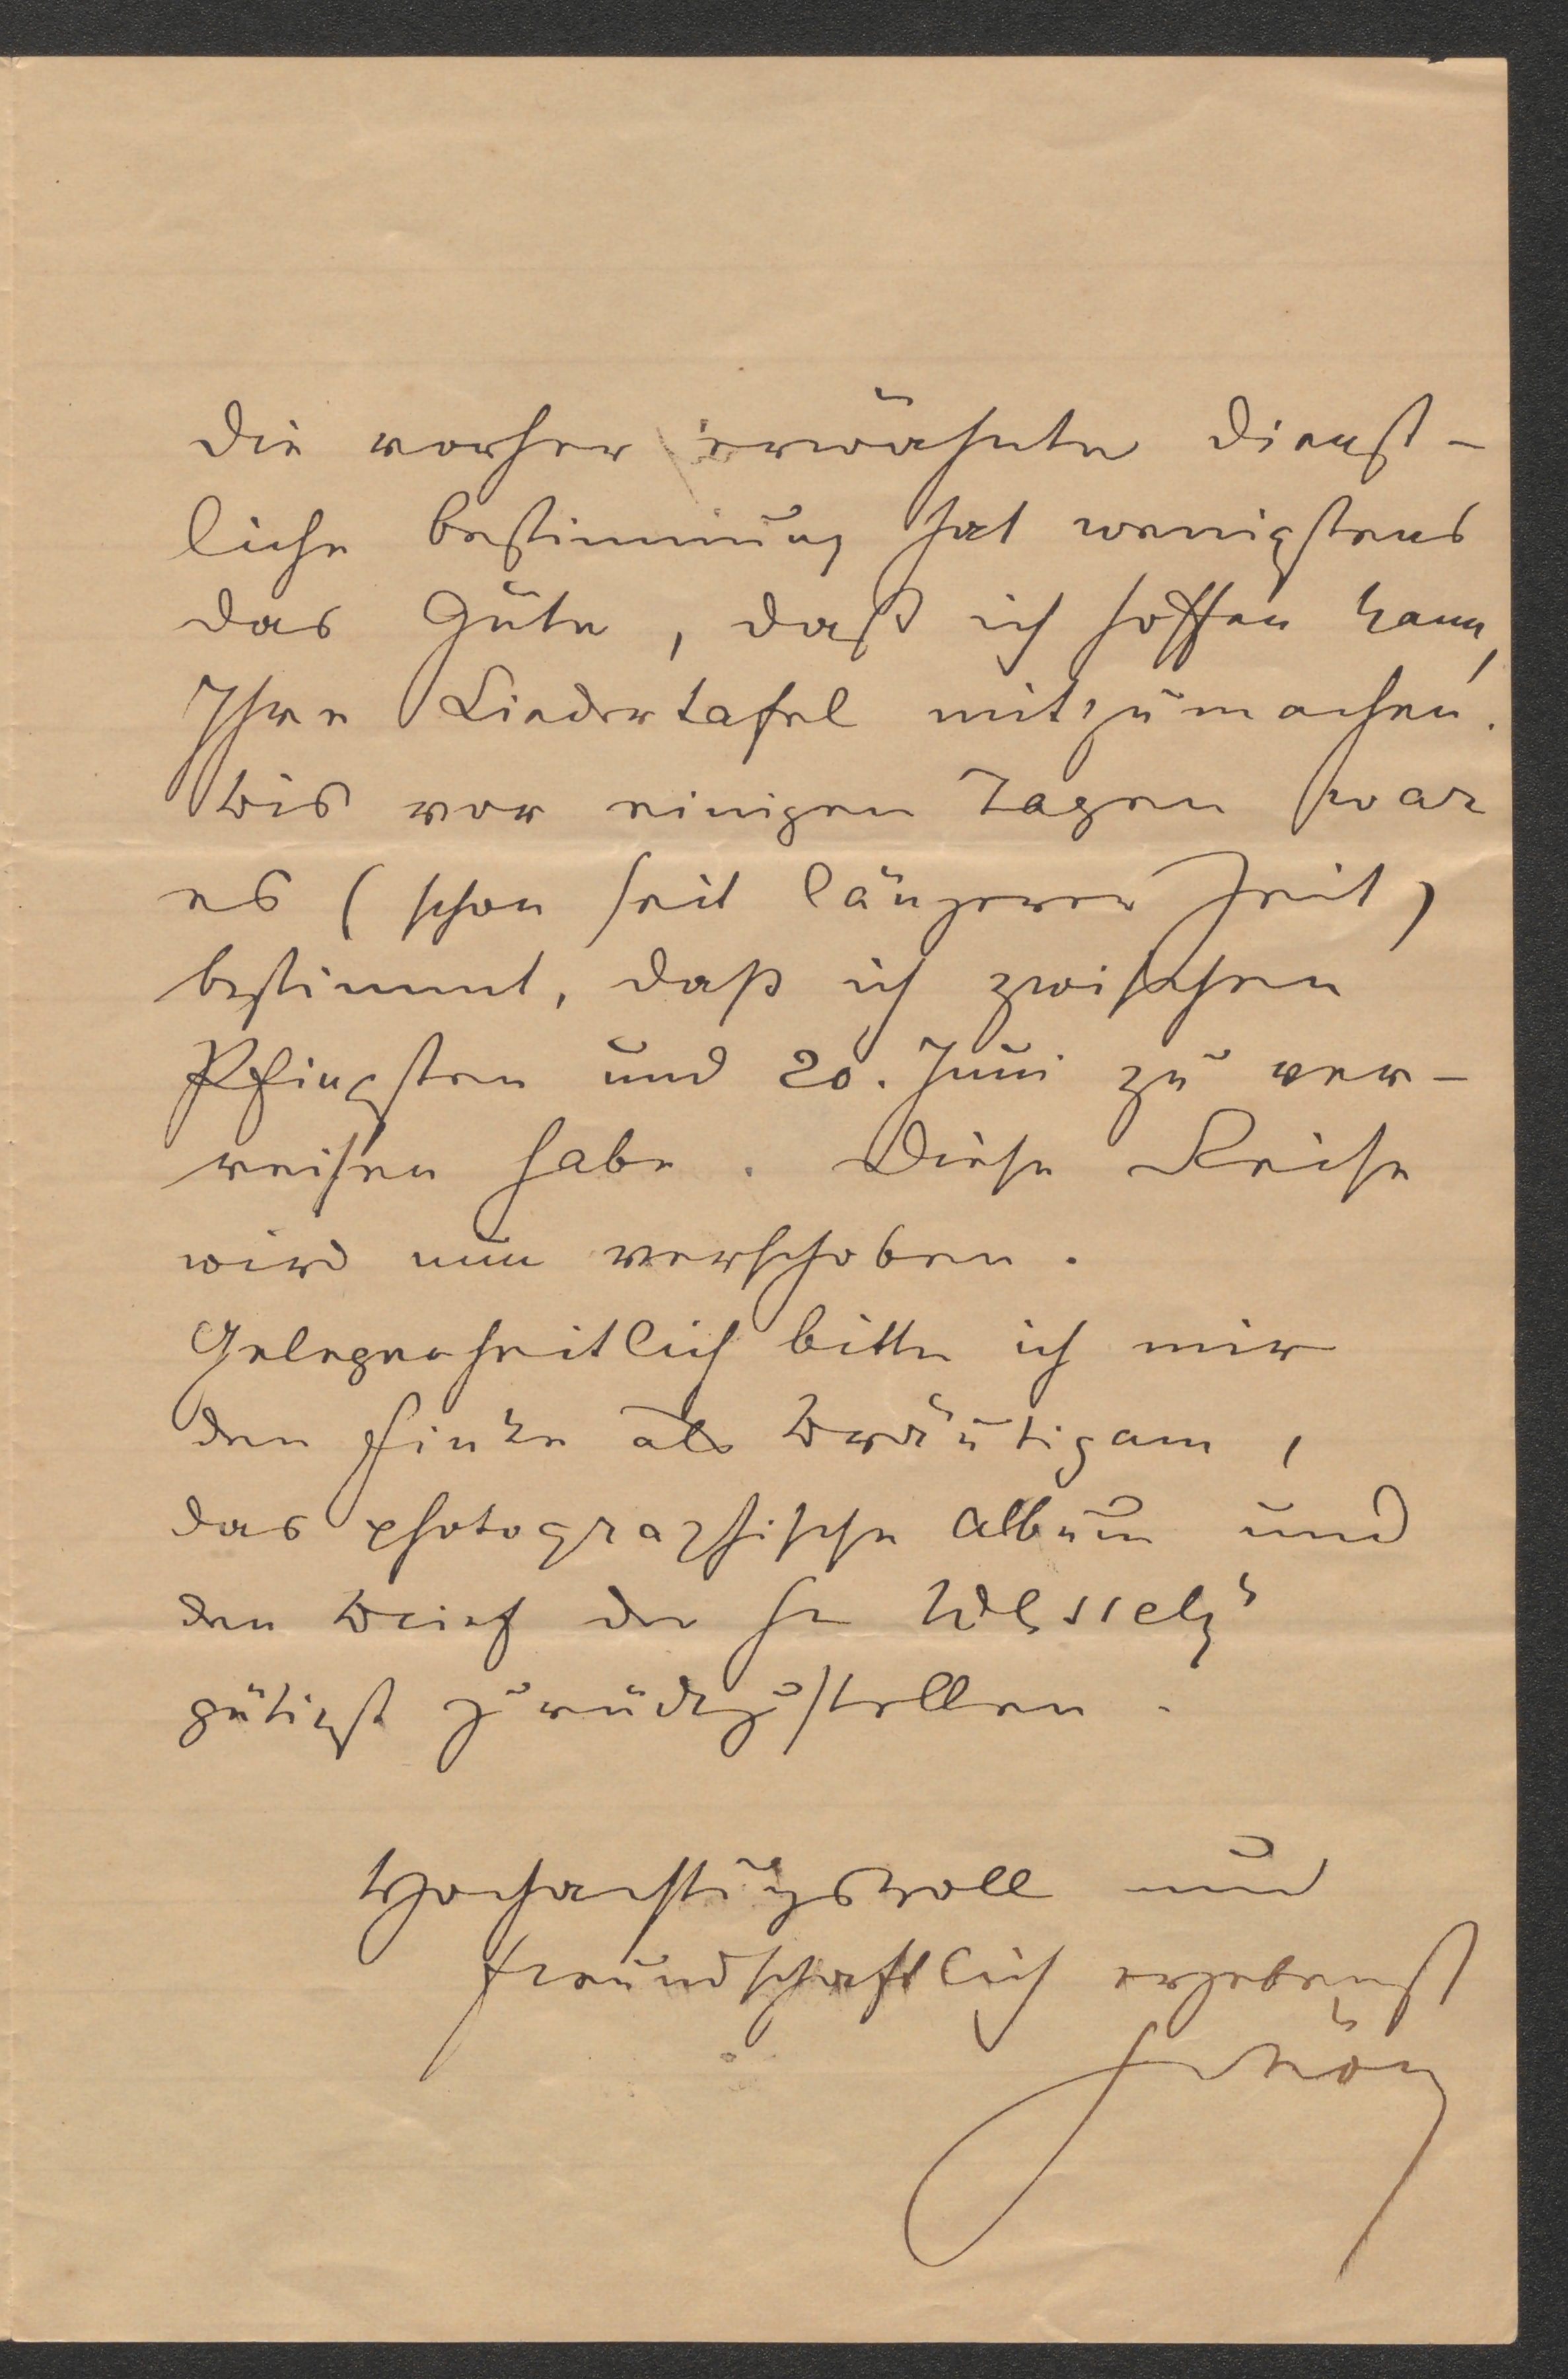 Die vorher erwähnte dienst-
liche Bestimmung hat wenigstens
das Gute, daß ich hoffen kann,
Ihre Liedertafel mitzumachen.
Bis vor einigen Tagen war
es (schon seit längerer Zeit)
bestimmt, daß ich zwischen
Pfingsten und 20. Juni zu ver-
reisen habe. Diese Reise
wird nun verschoben.
Gelegenheitlich bitte ich mir
den Finke als Bräutigam,
das photographische Album und
den Brief der Wessely
gütigst zurückzustellen.
Hochachtungsvoll und
freundschaftlich ergebenst
Schön